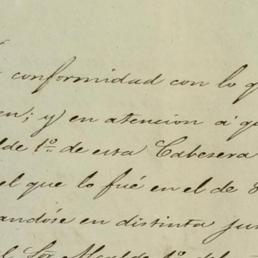 conformidad con lo q
en; y en atencion a' q
lde 1º. de esta Cabesera
el que lo fué en el de 8
andóse en distinta jur
l Sor. Alcalde 1º. del